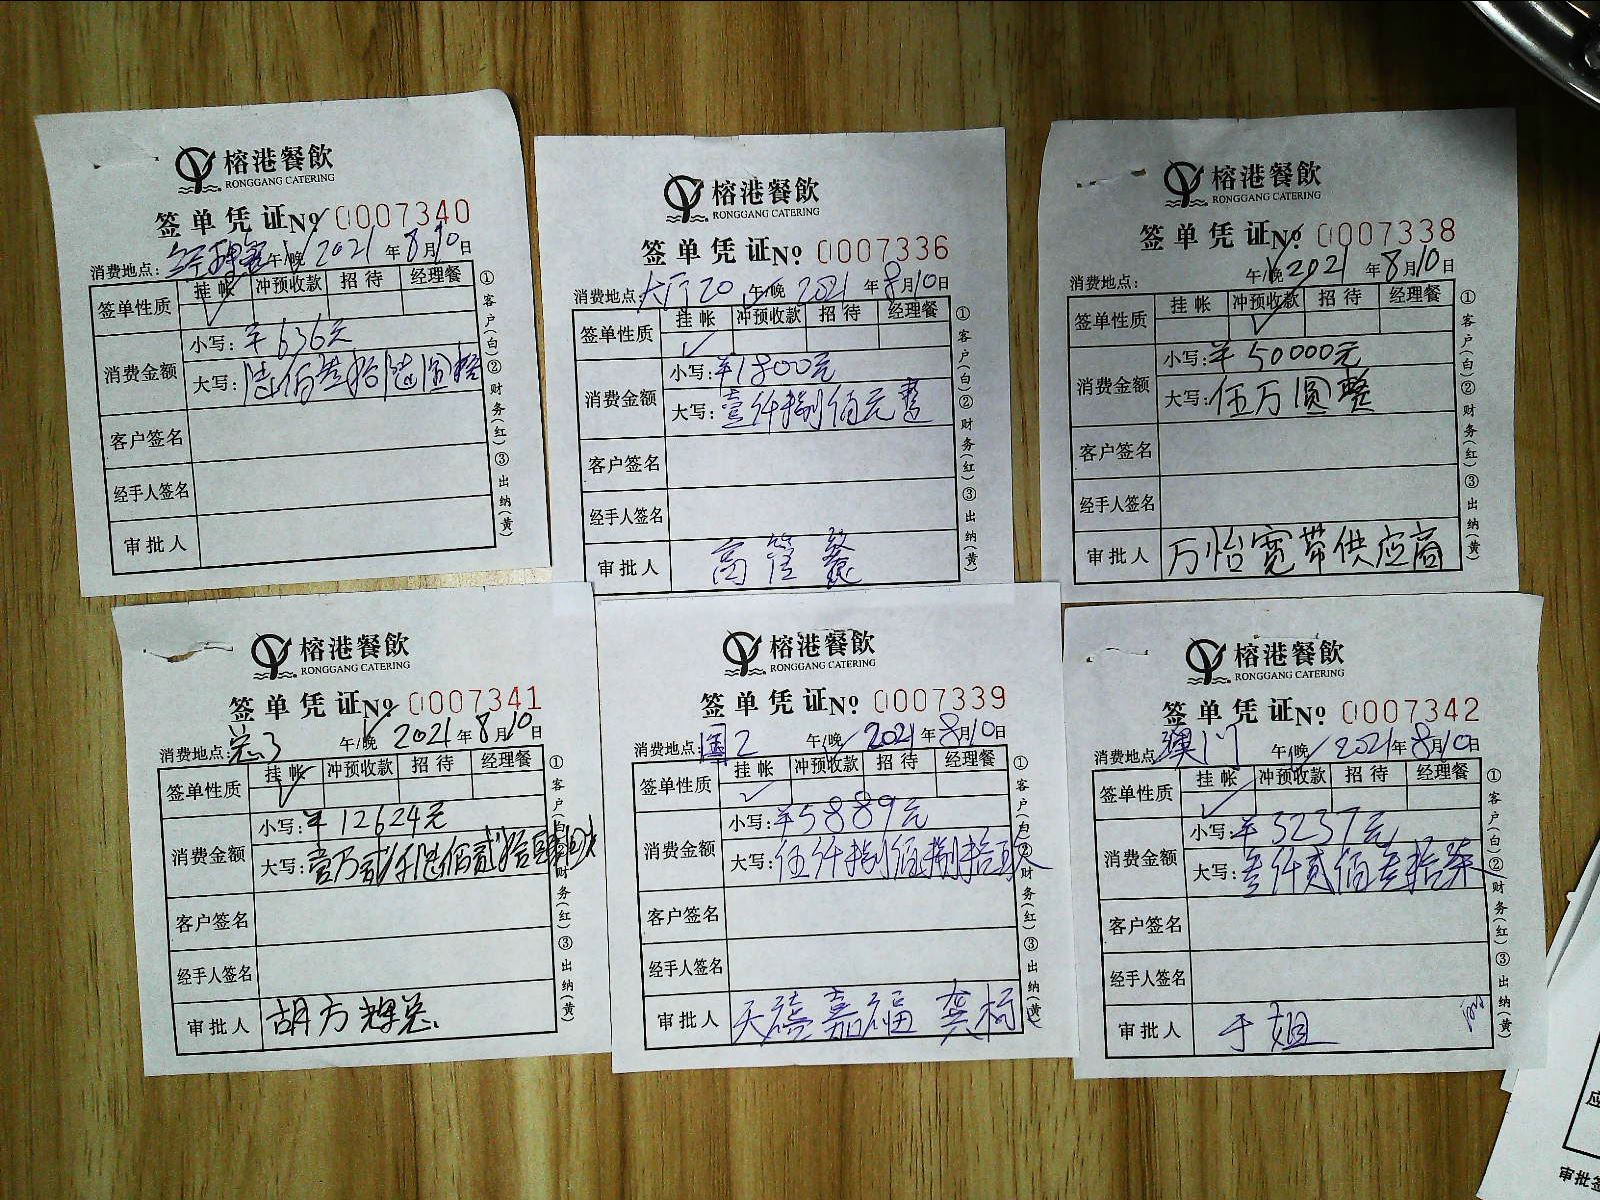 榕港餐飲
RONGGANG CATERING
签单凭证 № 0007340
消费地点: 午/晚 2021年8月10日
签单性质 挂帐 冲预收款 招待 经理餐
消费金额 小写: ¥636元
大写: 陆佰叁拾陆圆整
客户签名
经手人签名
审批人
①客户(白)②财务(红)③出纳(黄)
榕港餐飲
RONGGANG CATERING
签单凭证 № 0007336
消费地点: 大厅20 午/晚 2021年8月10日
签单性质 挂帐 冲预收款 招待 经理餐
消费金额 小写: ¥1800元
大写: 壹仟捌佰元整
客户签名
经手人签名
审批人 高管餐
①客户(白)②财务(红)③出纳(黄)
榕港餐飲
RONGGANG CATERING
签单凭证 № 0007338
消费地点: 午/晚 2021年8月10日
签单性质 挂帐 冲预收款 招待 经理餐
消费金额 小写: ¥50000元
大写: 伍万圆整
客户签名
经手人签名
审批人 万怡宽带供应商
①客户(白)②财务(红)③出纳(黄)
榕港餐飲
RONGGANG CATERING
签单凭证 № 0007341
消费地点: 午/晚 2021年8月10日
签单性质 挂帐 冲预收款 招待 经理餐
消费金额 小写: ¥12624元
大写: 壹万贰仟陆佰贰拾肆
客户签名
经手人签名
审批人 胡方辉总
①客户(白)②财务(红)③出纳(黄)
榕港餐飲
RONGGANG CATERING
签单凭证 № 0007339
消费地点: 国2 午/晚 2021年8月10日
签单性质 挂帐 冲预收款 招待 经理餐
消费金额 小写: ¥5889元
大写: 伍仟捌佰捌拾玖
客户签名
经手人签名
审批人 天禧嘉福 龚杨
①客户(白)②财务(红)③出纳(黄)
榕港餐飲
RONGGANG CATERING
签单凭证 № 0007342
消费地点: 澳门 午/晚 2021年8月10日
签单性质 挂帐 冲预收款 招待 经理餐
消费金额 小写: ¥3237元
大写: 叁仟贰佰叁拾柒
客户签名
经手人签名
审批人 于姐
①客户(白)②财务(红)③出纳(黄)
审批